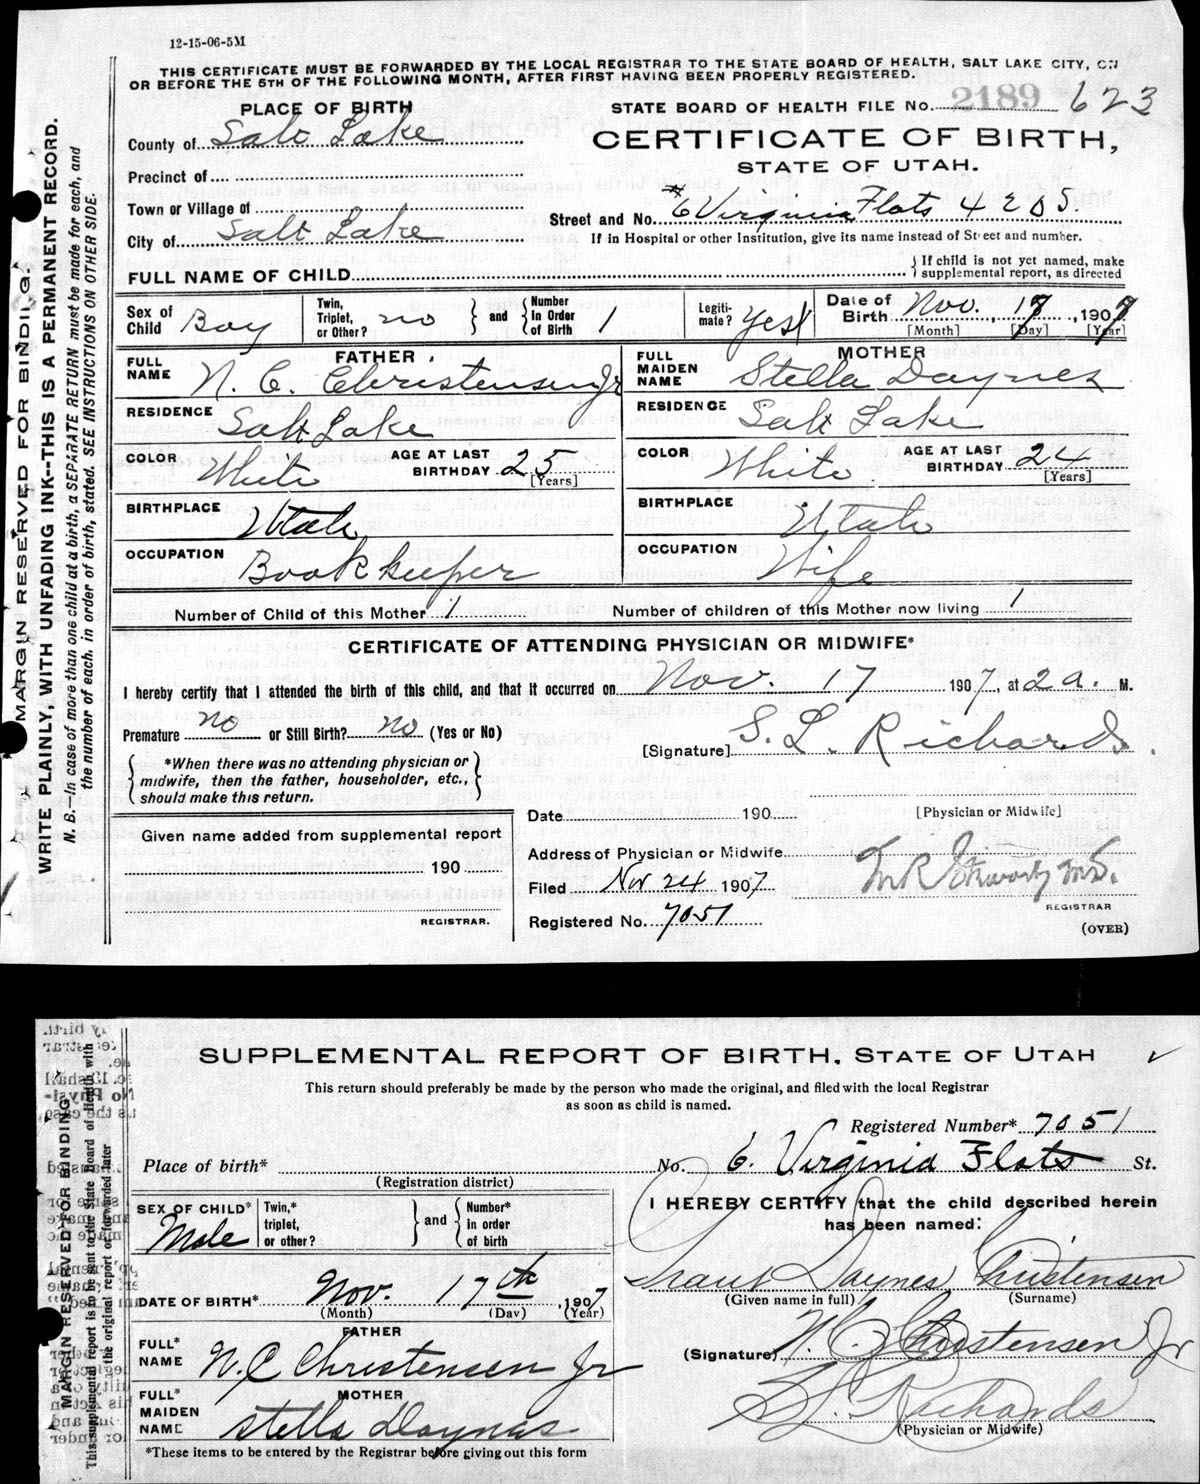 12-15-06-5M
THIS CERTIFICATE MUST BE FORWARDED BY THE LOCAL REGISTRAR TO THE STATE BOARD OF HEALTH, SALT LAKE CITY, ON
OR BEFORE THE 5TH OF THE FOLLOWING MONTH, AFTER FIRST HAVING BEEN PROPERLY REGISTERED.
PLACE OF BIRTH
STATE BOARD OF HEALTH FILE No. 2189 623
County of Salt Lake
CERTIFICATE OF BIRTH,
STATE OF UTAH.
Precinct of
Town or Village of
Street and No. #6 Virginia Flats 4 E 2 S.
City of Salt Lake
If in Hospital or other Institution, give its name instead of Street and number.
FULL NAME OF CHILD
{ If child is not yet named, make
supplemental report, as directed
Sex of Child Boy
Twin, Triplet, or Other? no } and { Number In Order of Birth 1
Legiti- mate? Yes
Date of Birth Nov. 17, 1907
[Month] [Day] [Year]
FATHER
FULL NAME N. C. Christensen Jr
MOTHER
FULL MAIDEN NAME Stella Daynes
RESIDENCE Salt Lake
RESIDENCE Salt Lake
COLOR White AGE AT LAST BIRTHDAY 25 [Years]
COLOR White AGE AT LAST BIRTHDAY 24 [Years]
BIRTHPLACE Utah
BIRTHPLACE Utah
OCCUPATION Bookkeeper
OCCUPATION Wife
Number of Child of this Mother 1 Number of children of this Mother now living 1
CERTIFICATE OF ATTENDING PHYSICIAN OR MIDWIFE*
I hereby certify that I attended the birth of this child, and that it occurred on Nov. 17 1907, at 2 a. M.
Premature no or Still Birth? no (Yes or No)
[Signature] S. L. Richards.
{ *When there was no attending physician or
midwife, then the father, householder, etc.,
should make this return. }
[Physician or Midwife]
Date 190
Given name added from supplemental report
190
REGISTRAR.
Address of Physician or Midwife
Filed Nov 24 1907
REGISTRAR
Registered No. 7051
(OVER)
MARGIN RESERVED FOR BINDING.
WRITE PLAINLY, WITH UNFADING INK--THIS IS A PERMANENT RECORD.
N. B.—In case of more than one child at a birth, a SEPARATE RETURN must be made for each, and
the number of each, in order of birth, stated. SEE INSTRUCTIONS ON OTHER SIDE.
SUPPLEMENTAL REPORT OF BIRTH, STATE OF UTAH
This return should preferably be made by the person who made the original, and filed with the local Registrar
as soon as child is named.
Registered Number* 7051
Place of birth* No. 6. Virginia Flats St.
(Registration district)
SEX OF CHILD* Male
Twin,* triplet, or other? } and { Number* in order of birth
I HEREBY CERTIFY that the child described herein
has been named:
Grant Daynes Christensen
(Given name in full) (Surname)
DATE OF BIRTH* Nov. 17th, 1907
(Month) (Day) (Year)
FATHER
FULL* NAME N. C Christensen Jr
(Signature) N. C. Christensen Jr
MOTHER
FULL* MAIDEN NAME Stella Daynes
S. L. Richards
(Physician or Midwife)
*These items to be entered by the Registrar before giving out this form
MARGIN RESERVED FOR BINDING
This supplemental report is to be sent to the State Board of Health with
the original report or forwarded later